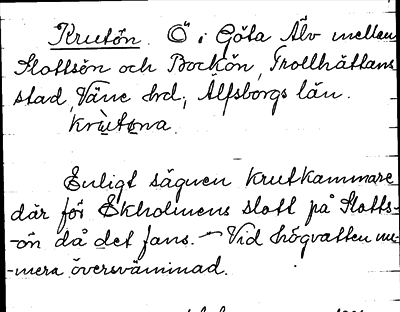 Krutön. Ö i Göta Älv mellan
Slottsön och Bockön, Trollhättans
stad, Väne hrd, Älfsborgs län.
krùtøna.
Enligt sägnen krutkammare
där för Ekholmens slott på Slotts-
-ön då det fans. — Vid högvatten nu-
-mera översvämmad.